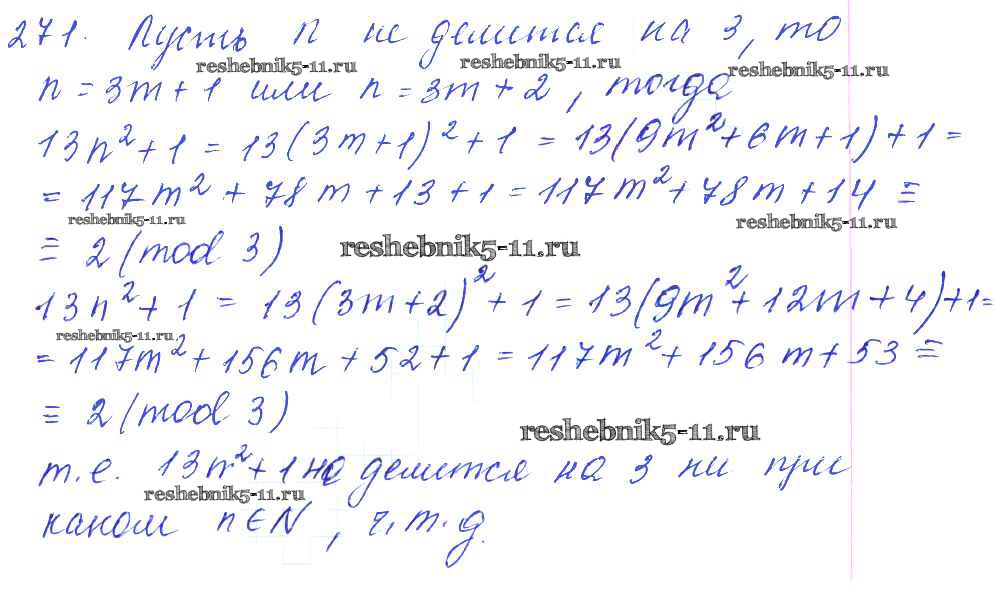 271. Пусть n не делится на 3, то
reshebnik5-11.ru reshebnik5-11.ru reshebnik5-11.ru
n = 3m + 1 или n = 3m + 2, тогда
13n² + 1 = 13(3m+1)² + 1 = 13(9m² + 6m + 1) + 1 =
= 117m² + 78m + 13 + 1 = 117m² + 78m + 14 ≡
reshebnik5-11.ru reshebnik5-11.ru
≡ 2 (mod 3) reshebnik5-11.ru
13n² + 1 = 13(3m+2)² + 1 = 13(9m² + 12m + 4) + 1 =
reshebnik5-11.ru
= 117m² + 156m + 52 + 1 = 117m² + 156m + 53 ≡
≡ 2 (mod 3)
reshebnik5-11.ru
т.е. 13n² + 1 не делится на 3 ни при
reshebnik5-11.ru
каком n ∈ N, ч.т.д.